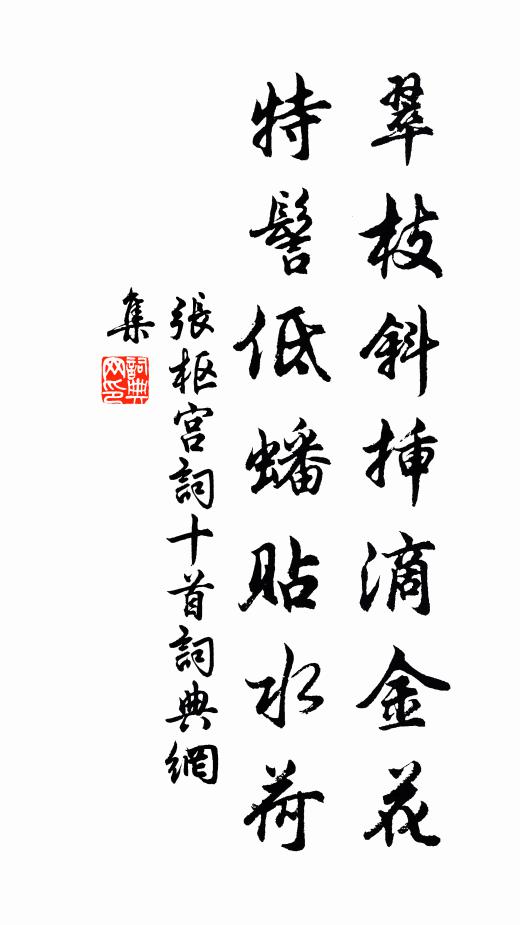 翠枝斜插滴金花
特髻低蟠貼水荷
張枢宫詞十首詞典網
集
詞典网印